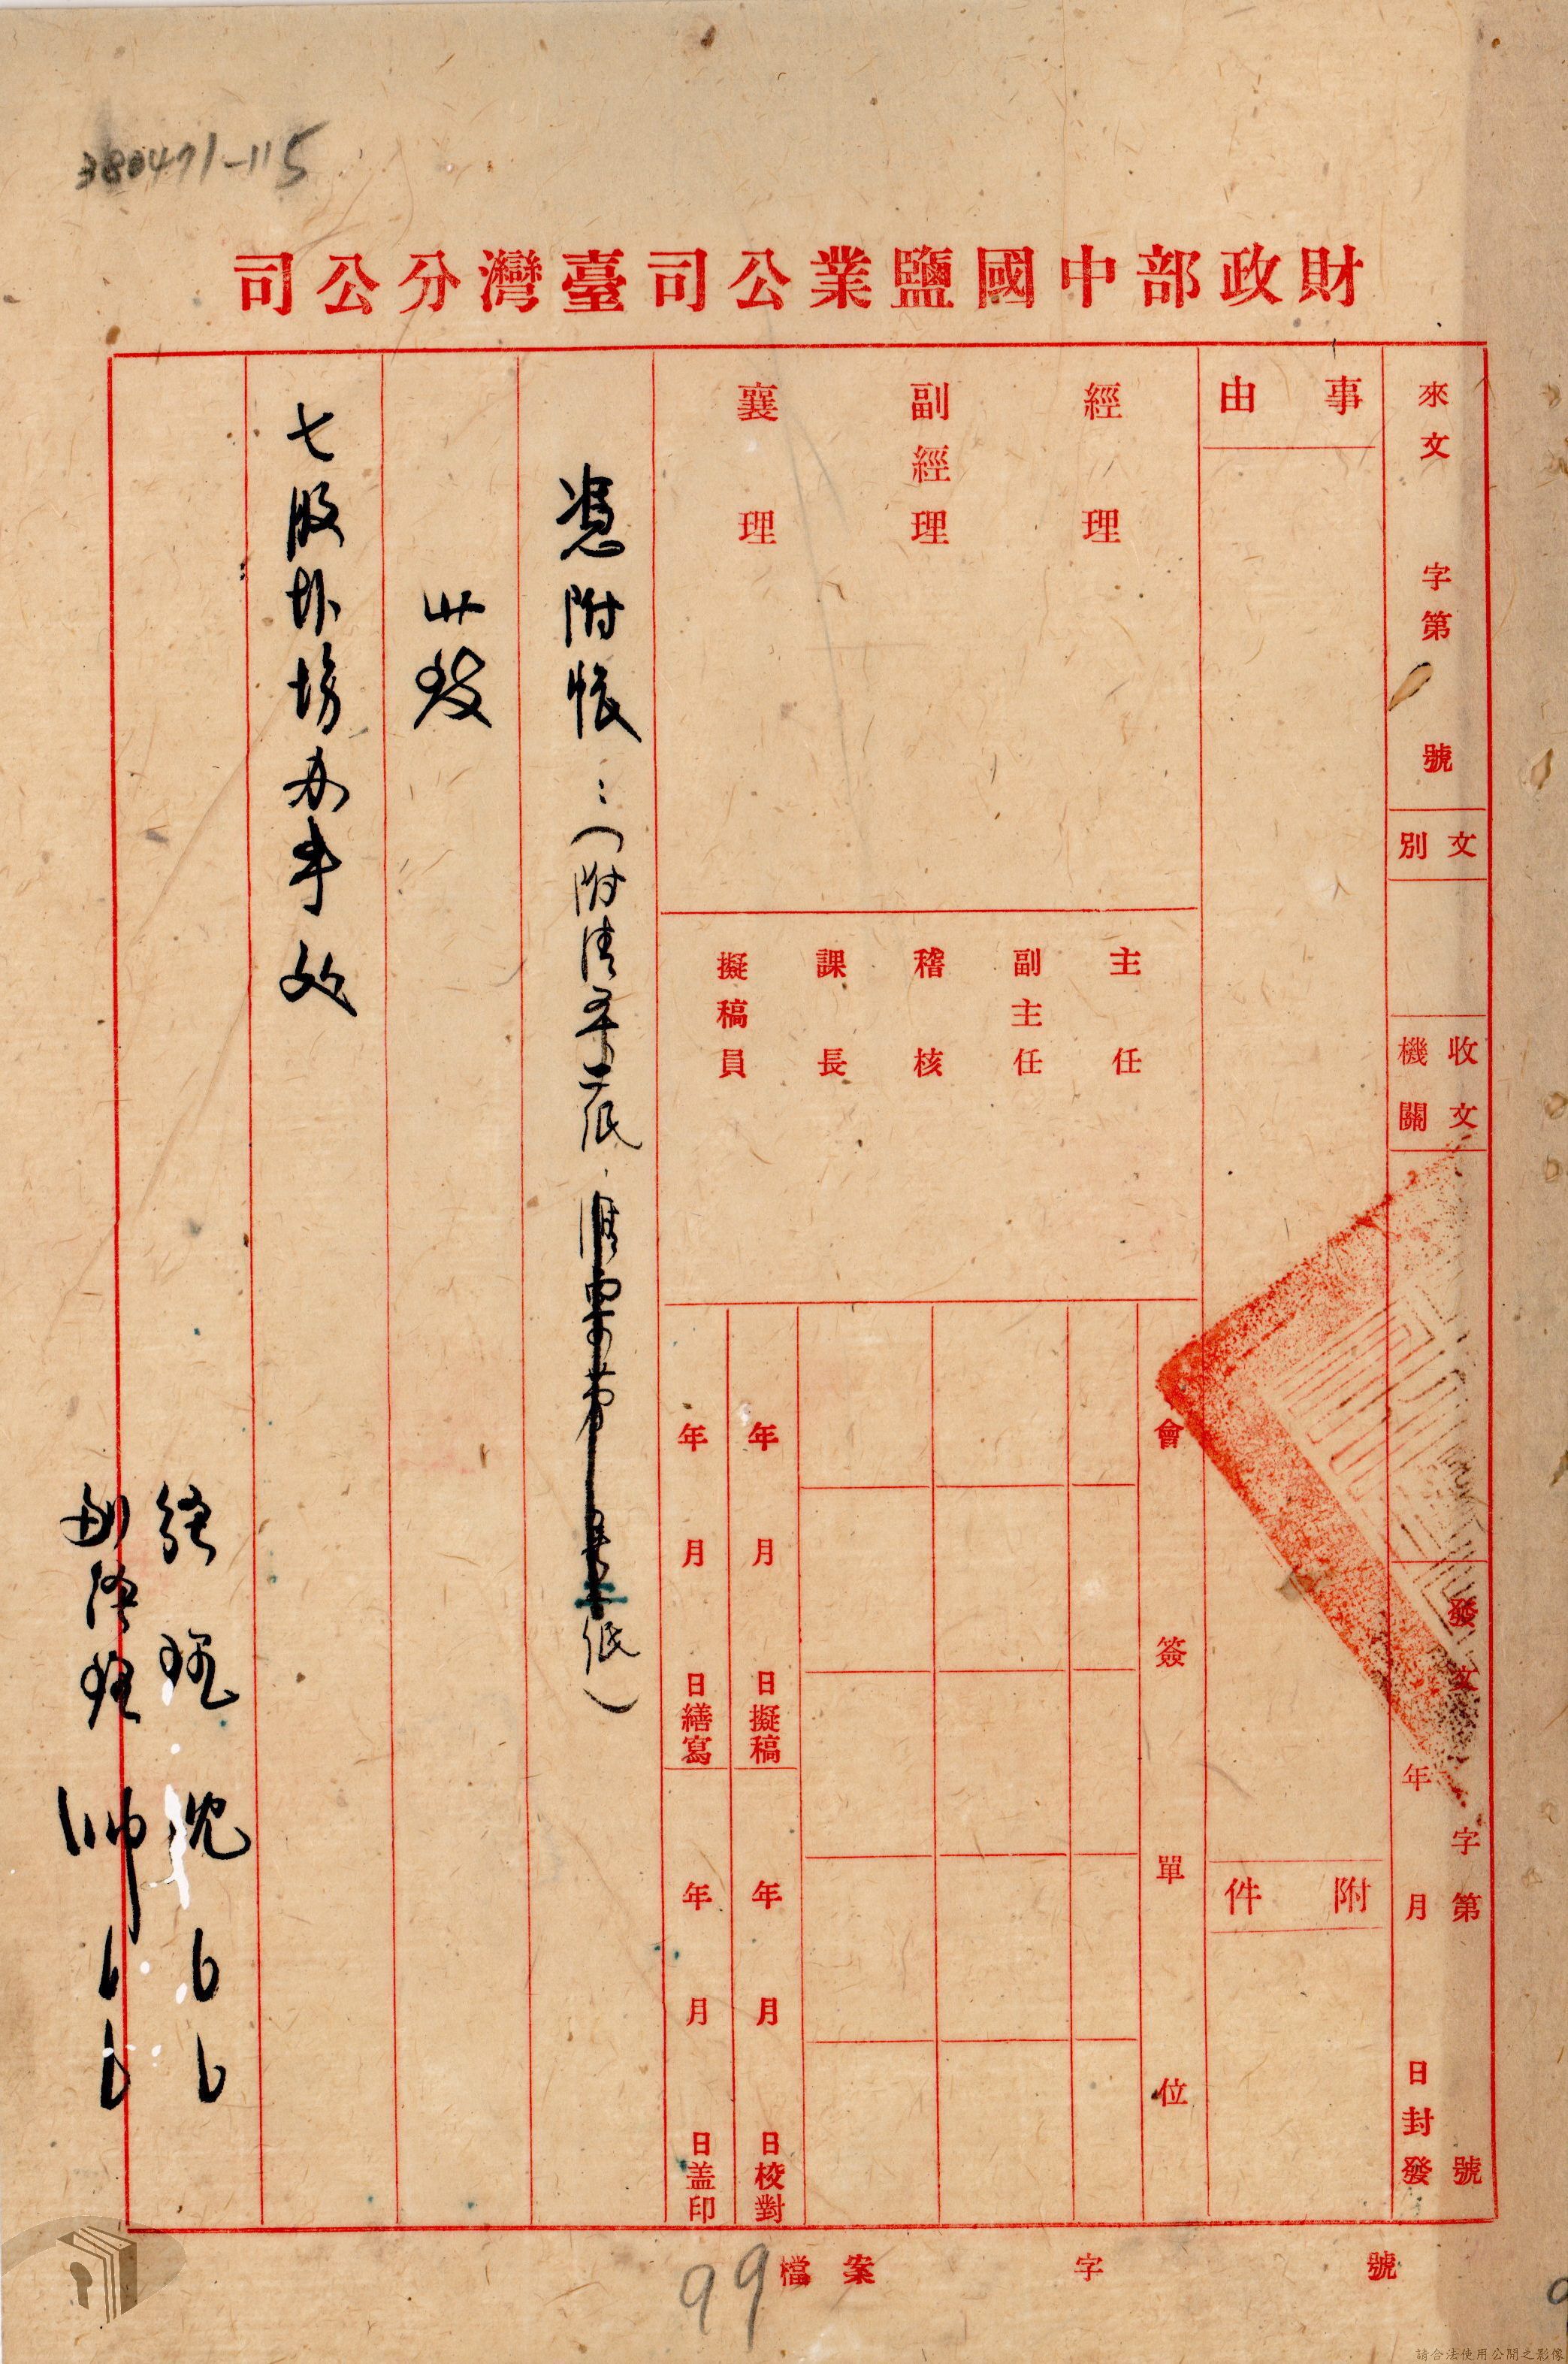 380471-115
財政部中國鹽業公司臺灣分公司
來文 字第 號
文別
收文機關
發文 字第 號
年 月 日封發
事由
附件
經理
副經理
襄理
主任
副主任
稽核
課長
擬稿員
會簽單位
年 月 日擬稿
年 月 日校對
年 月 日繕寫
年 月 日盖印
憑附帳：（附清單二紙 紙）
此致
七股扑場办事处
經理 沈 6 6
副經理 帥 6 6
檔案 字 號
99
請合法使用公開之影像